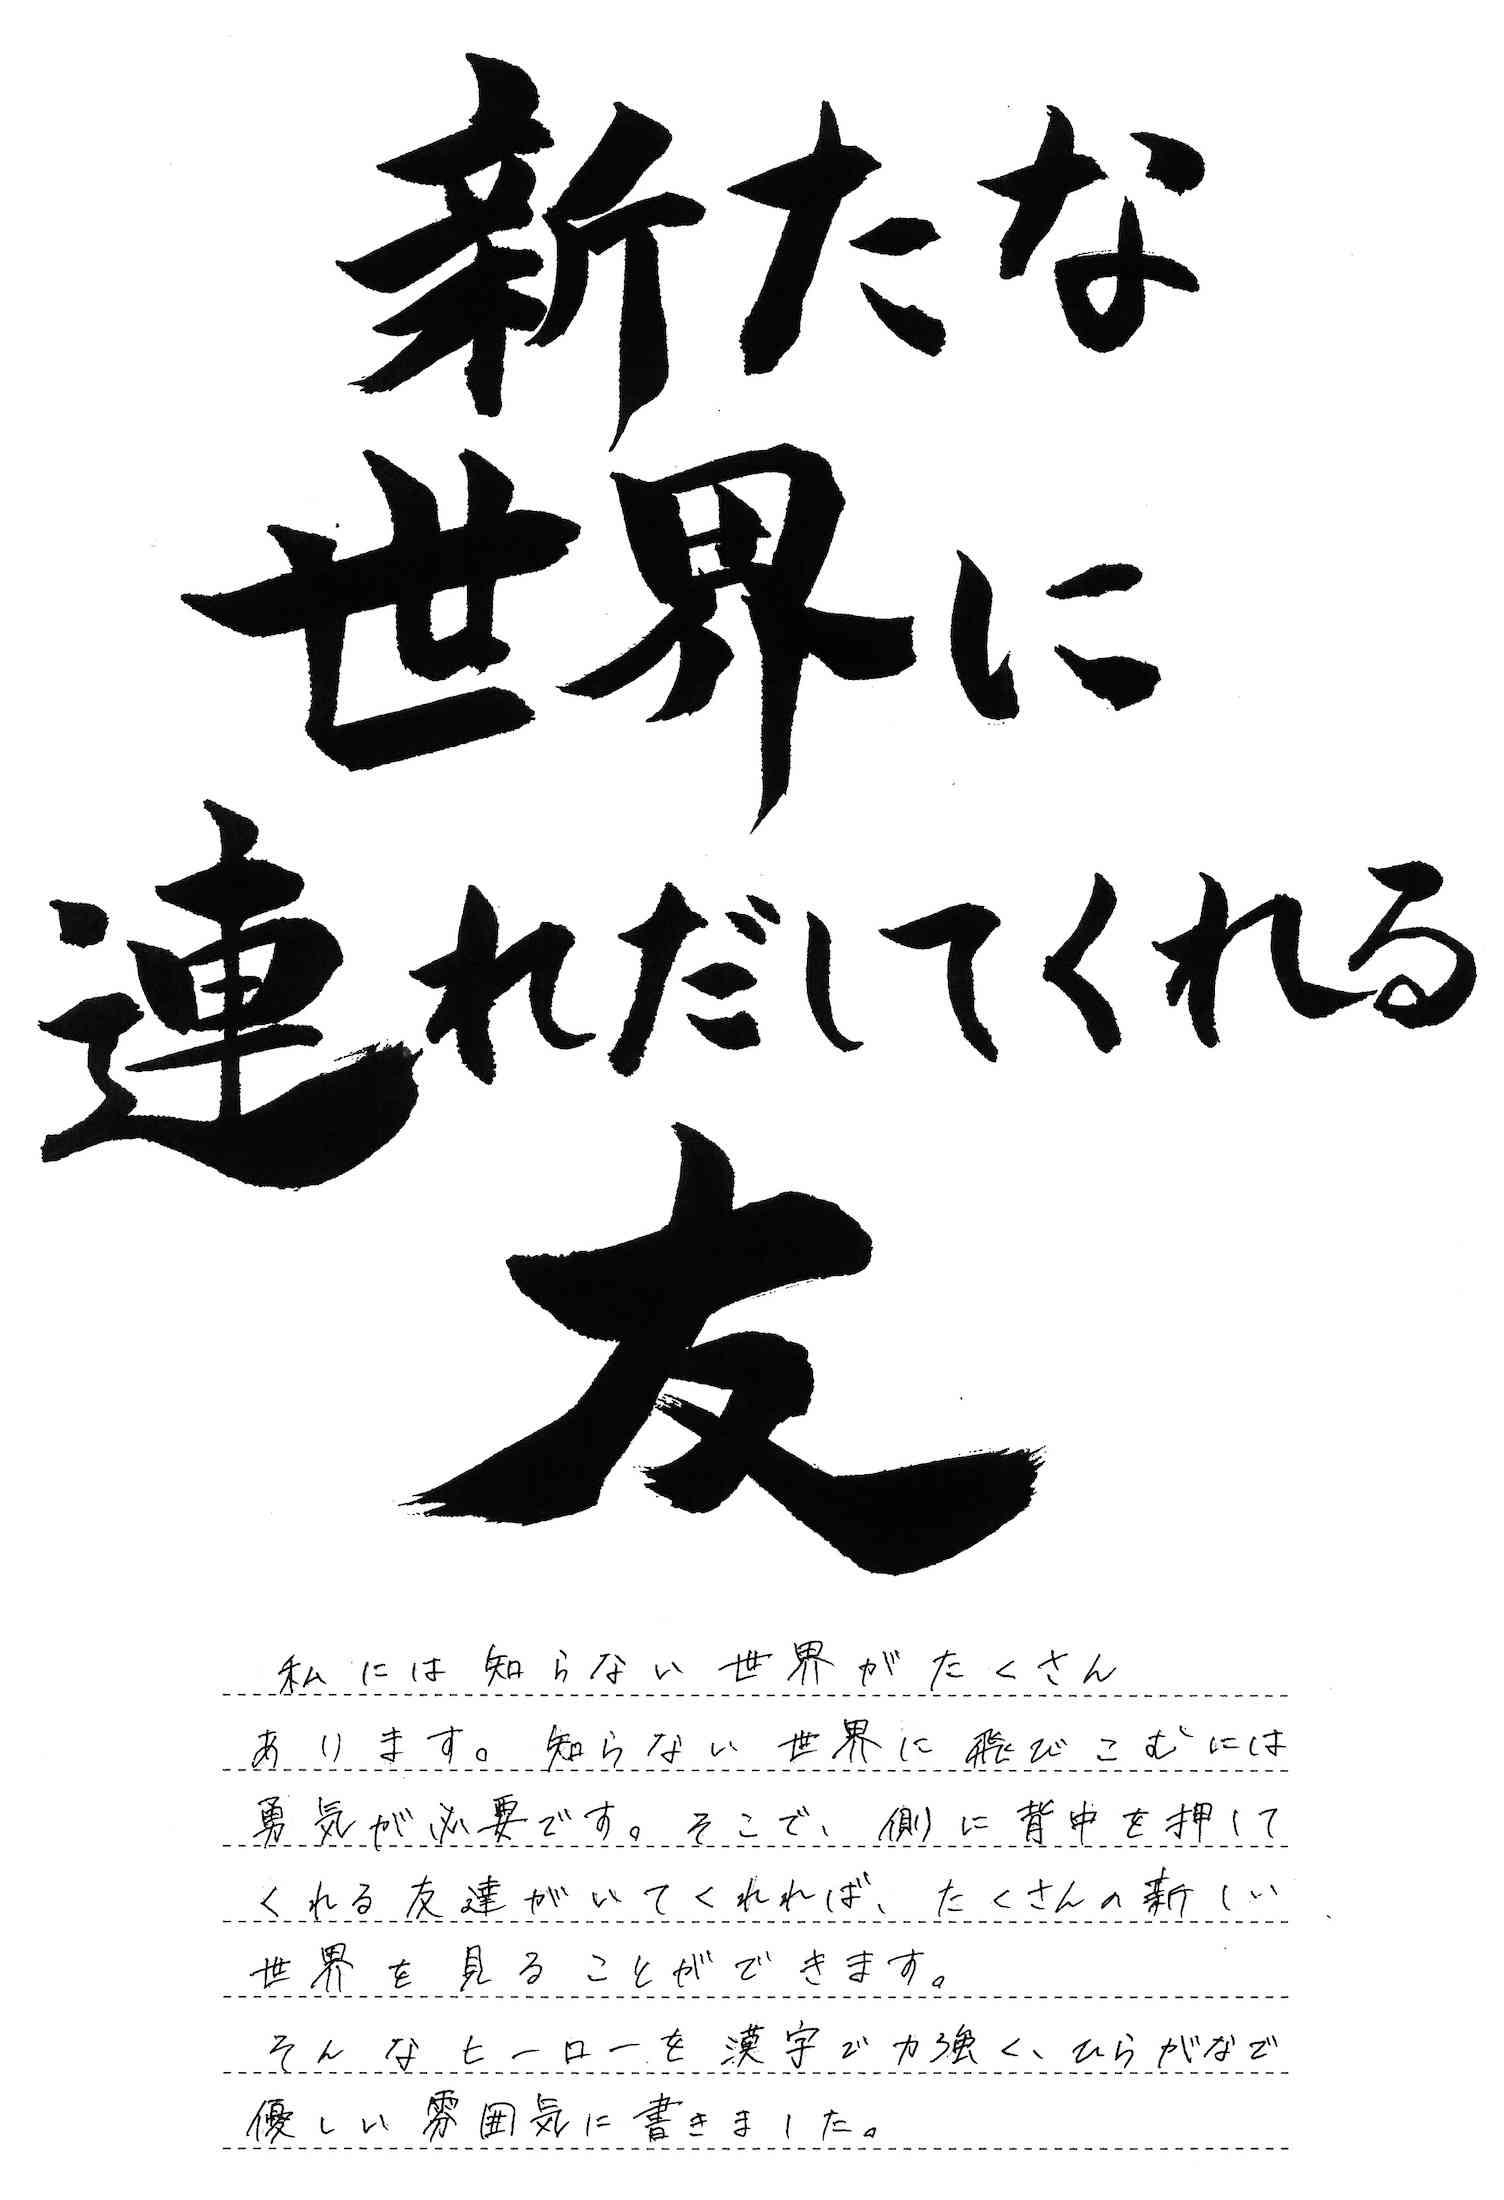 新たな
世界に
連れだしてくれる
友
私には知らない世界がたくさん
あります。知らない世界に飛びこむには
勇気が必要です。そこで、側に背中を押して
くれる友達がいてくれれば、たくさんの新しい
世界を見ることができます。
そんなヒーローを漢字で力強く、ひらがなで
優しい雰囲気に書きました。